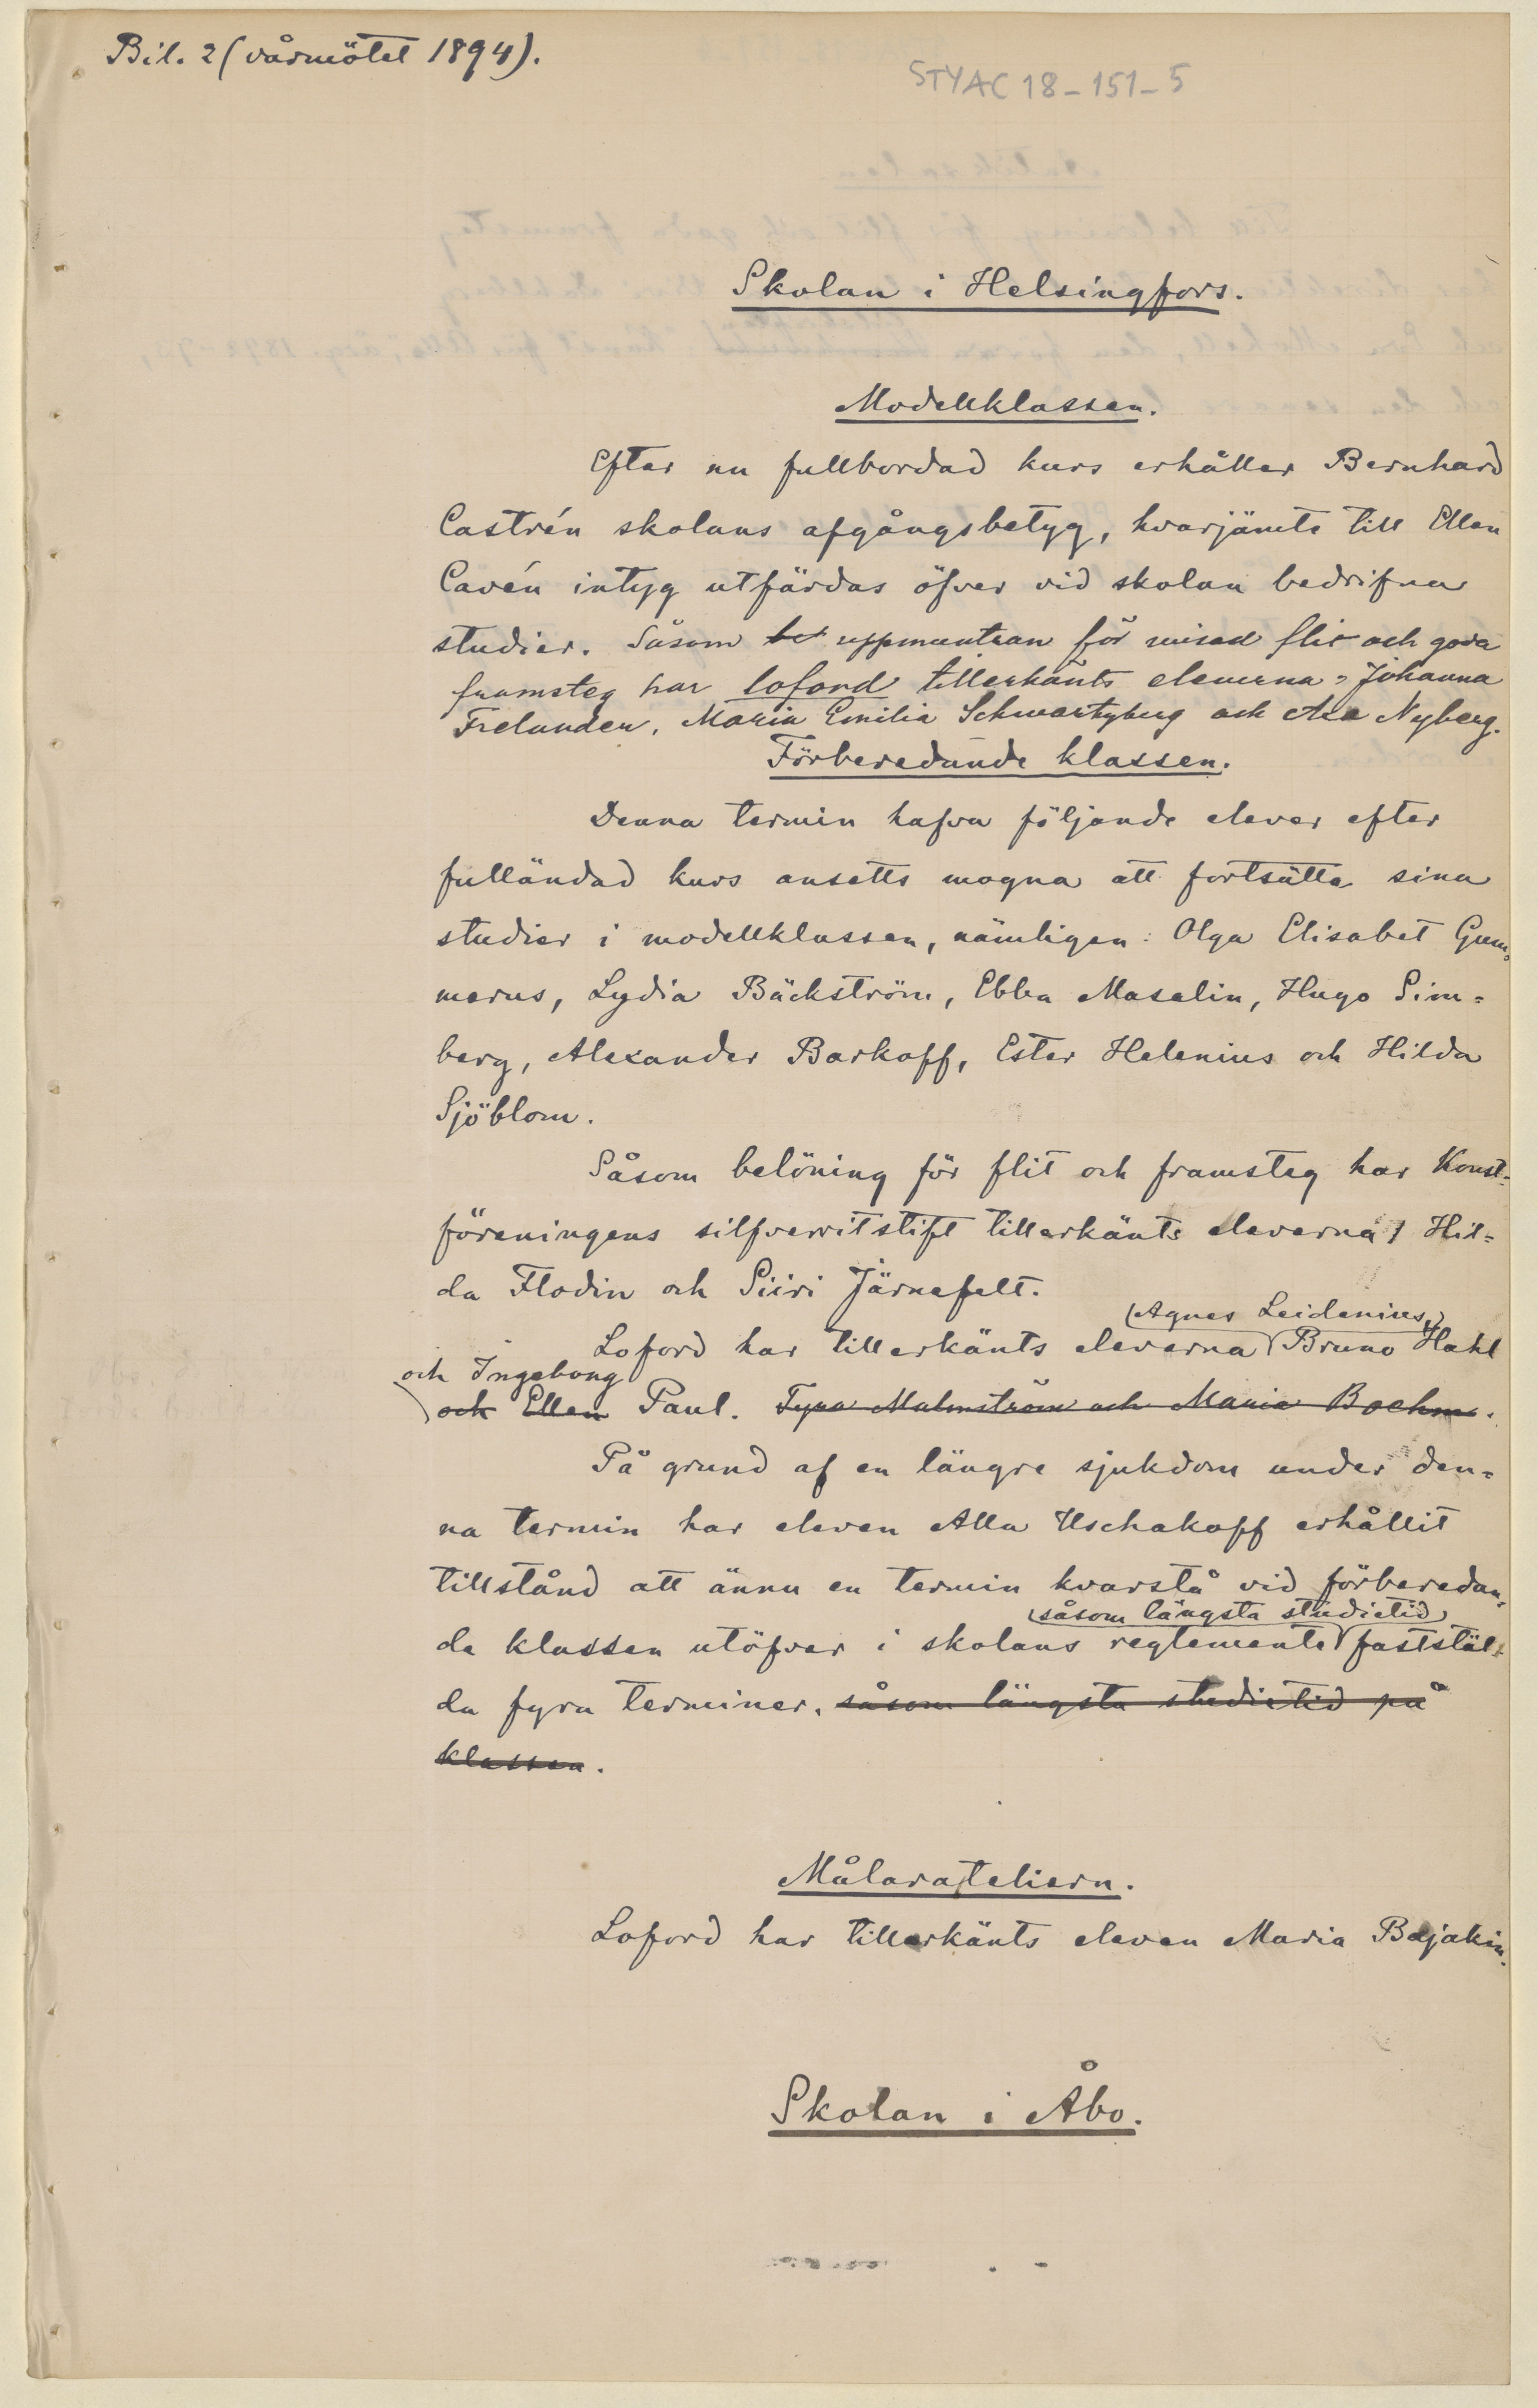 Bil. 2 (vårmötet 1894).
STYAC 18-151-5
Skolan i Helsingfors.
Modellklassen.
Efter nu fullbordad kurs erhåller Bernhard
Castrén skolans afgångsbetyg, hvarjämte till Ellen
Cavén intyg utfärdas öfver vid skolan bedrifna
studier. Såsom be uppmuntran för visad flit och goda
framsteg har loford tillerkänts eleverna Johanna
Frelander, Maria Emilia Schwartzberg och Ava Nyberg.
Förberedande klassen.
Denna termin hafva följande elever efter
fulländad kurs ansetts mogna att fortsätta sina
studier i modellklassen, nämligen: Olga Elisabet Gum=
merus, Lydia Bäckström, Ebba Masalin, Hugo Sim=
berg, Alexander Barkoff, Ester Helenius och Hilda
Sjöblom.
Såsom belöning för flit och framsteg har Konst=
föreningens silfverritstift tillerkänts eleverna Hil=
da Flodin och Siiri Järnefelt.
(Agnes Leidenius,)
Loford har tillerkänts eleverna Bruno Hahl
och Ingeborg
och Ellen Paul. Tyra Malmström och Maria Boehm.
På grund af en längre sjukdom under den=
na termin har eleven Alla Uschakoff erhållit
tillstånd att ännu en termin kvarstå vid förberedan=
(såsom längsta studietid)
de klassen utöfver i skolans reglemente faststäl=
da fyra terminer, såsom längsta studietid på
klassen.
Målarateliern.
Loford har tillerkänts eleven Maria Bajakin.
Skolan i Åbo.